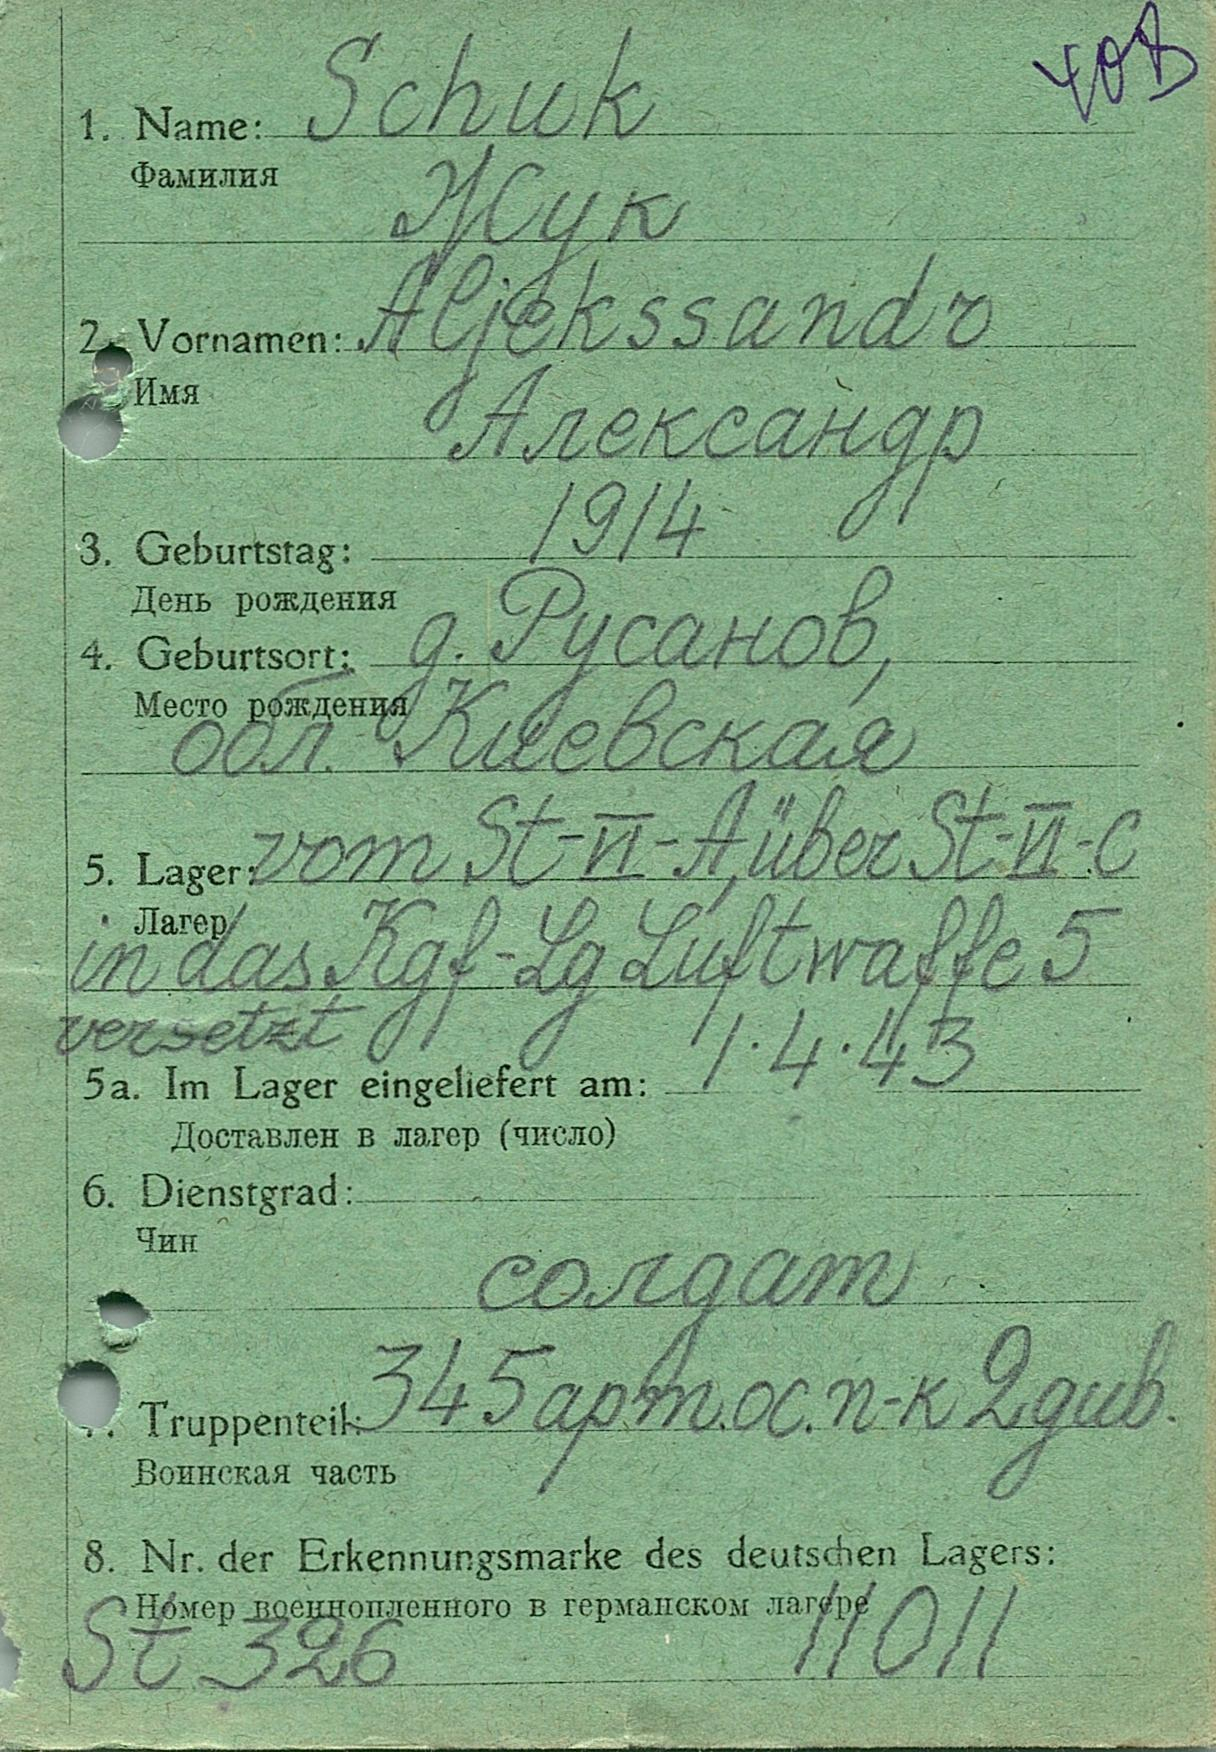 1. Name: Schuk
Фамилия
Жук
2. Vornamen: Aljekssandr
Имя
Александр
3. Geburtstag: 1914
День рождения
4. Geburtsort: д. Русанов,
Место рождения
обл. Киевская
5. Lager: vom St-VI-A, über St-VI-C
Лагер
in das Kgf-Lg Luftwaffe 5
versetzt
1.4.43
5a. Im Lager eingeliefert am:
Доставлен в лагер (число)
6. Dienstgrad:
Чин
солдат
7. Truppenteil: 345 арт.ос. п-к 2 див.
Воинская часть
8. Nr. der Erkennungsmarke des deutschen Lagers:
Номер военнопленного в германском лагере
St 326 11011